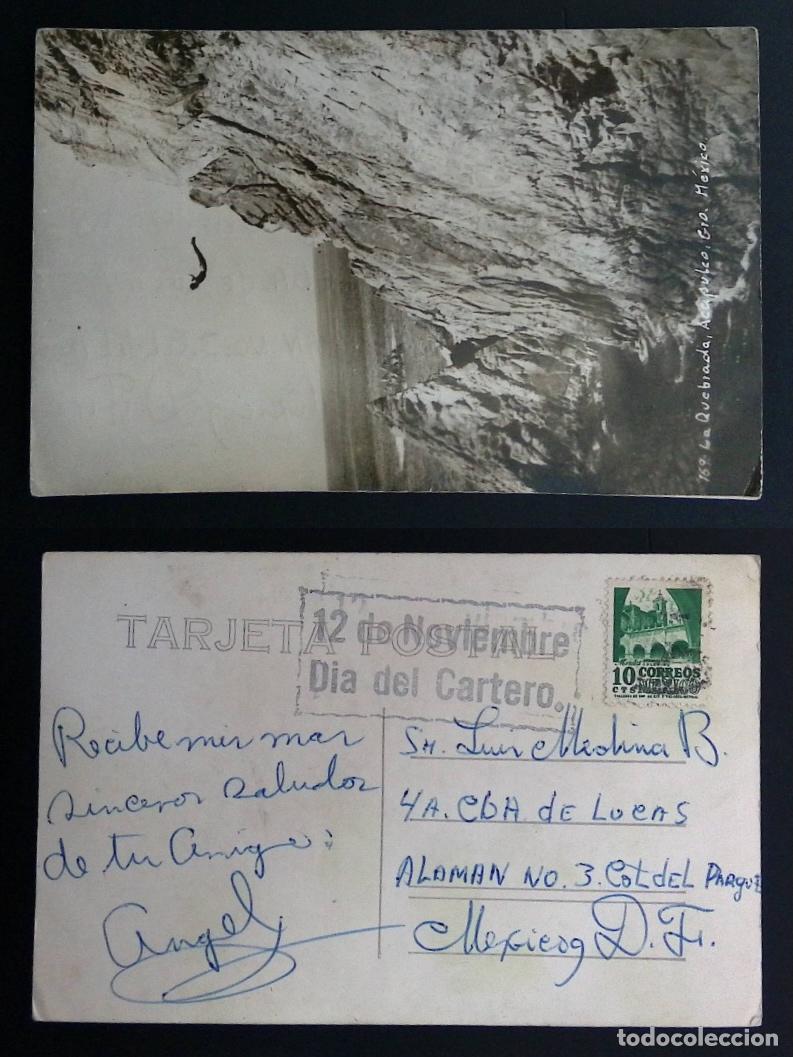 169. La Quebrada, Acapulco, Gro. México.
TARJETA POSTAL
12 de Noviembre
Dia del Cartero.
10 CORREOS
CTS MEXICO
Recibe mis mas
sinceros saludos
de tu amigo:
Angel
Sr. Luis Medina B.
4A. CDA DE LUCAS
ALAMAN NO. 3. Col DEL PARQUE
Mexico, D. F.
todocoleccion.net